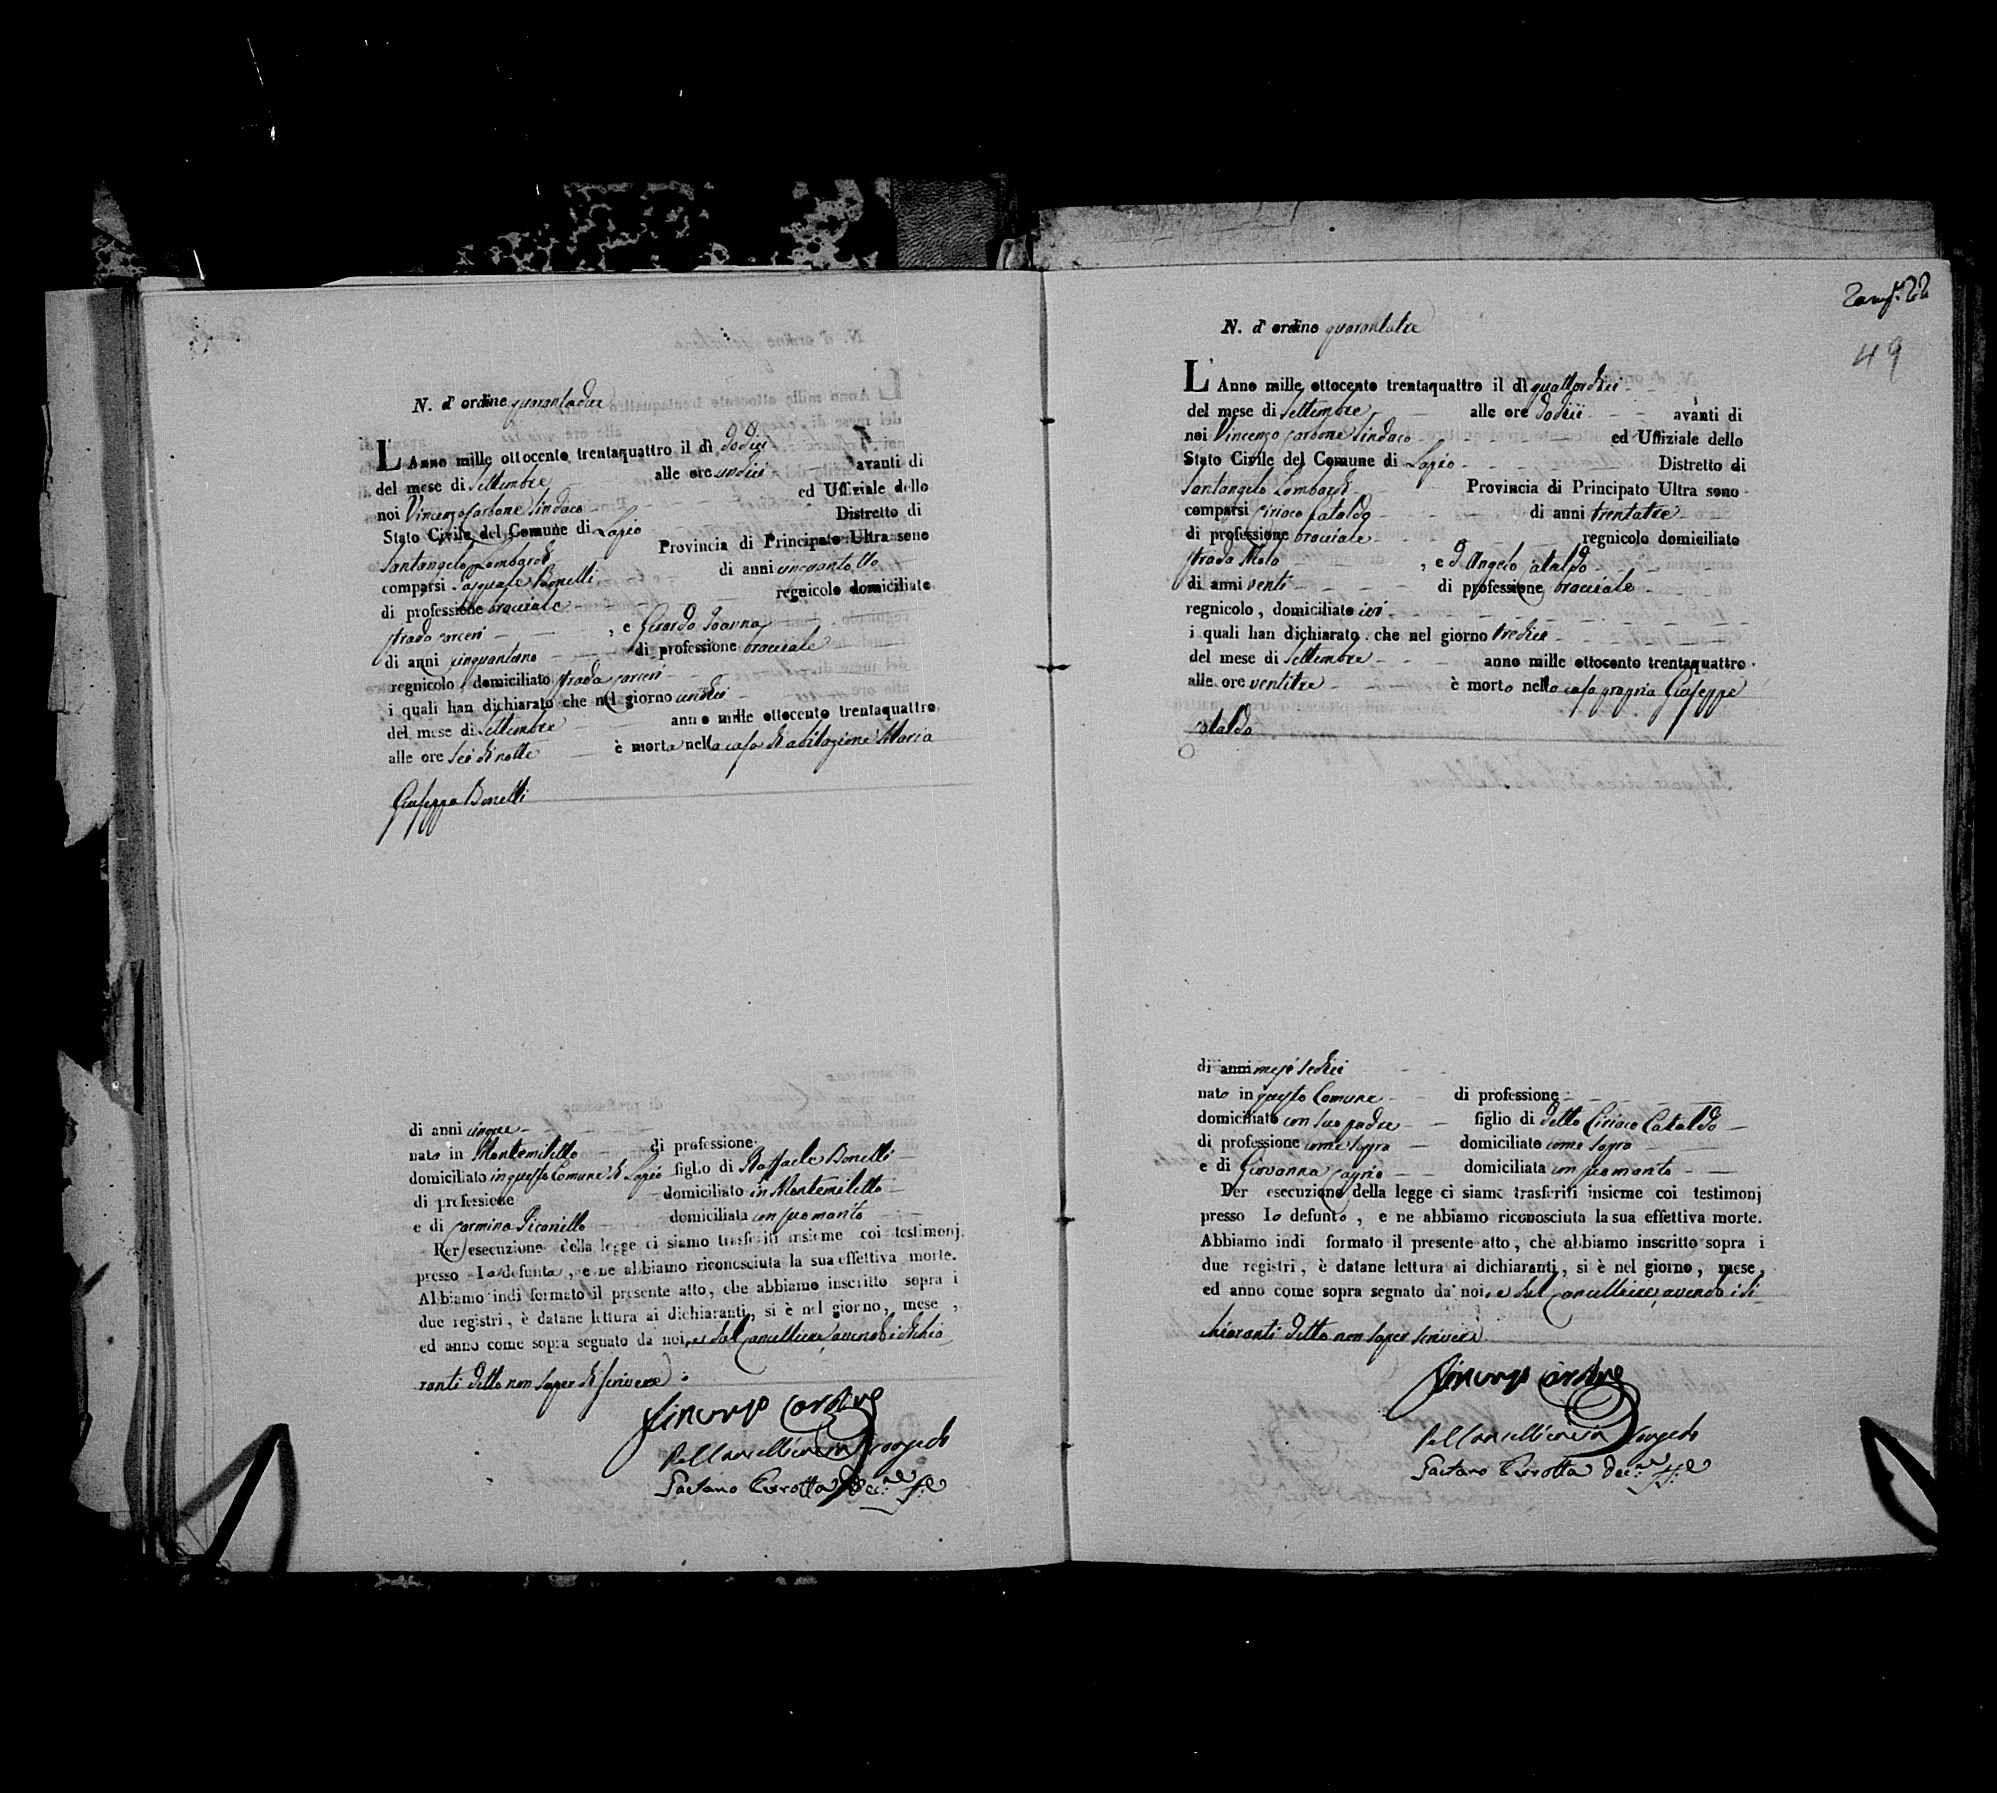 N. d'ordine quarantadue
L'Anno mille ottocento trentaquattro il dì dodici
del mese di Settembre alle ore undici avanti di
noi Vincenzo Carbone Sindaco ed Uffiziale dello
Stato Civile del Comune di Lapio Distretto di
Santangelo Lombardi Provincia di Principato Ultra sono
comparsi Pasquale Bonelli di anni
di professione bracciale regnicolo domiciliato
strada carceri , e Gerardo Ioanna
di anni cinquantuno di professione bracciale
regnicolo, domiciliato strada carceri
i quali han dichiarato che nel giorno undici
del mese di Settembre anno mille ottocento trentaquattro
alle ore sei di notte è morta nella casa di abitazione Maria
Giuseppa Bonelli
di anni cinque
nata in Montemiletto di professione
domiciliata in questo Comune di Lapio figlia di Raffaele Bonelli
di professione domiciliato in Montemiletto
e di Carmina Picariello domiciliata con suo marito
Per esecuzione della legge ci siamo trasferiti insieme coi testimonj
presso la defunta, e ne abbiamo riconosciuta la sua effettiva morte.
Abbiamo indi formato il presente atto, che abbiamo inscritto sopra i
due registri, è datane lettura ai dichiaranti, si è nel giorno, mese,
ed anno come sopra segnato da noi, e dal Cancelliere, avendo i dichia
ranti detto non saper di scrivere
Vincenzo Carbone
Pel Cancelliere in Congedo
Gaetano Carrotta Dec.ne ff.e
2 22
49
N. d'ordine quarantatre
L'Anno mille ottocento trentaquattro il dì quattordici
del mese di Settembre alle ore dodici avanti di
noi Vincenzo Carbone Sindaco ed Uffiziale dello
Stato Civile del Comune di Lapio Distretto di
Santangelo Lombardi Provincia di Principato Ultra sono
comparsi Ciriaco Cataldo di anni trentatre
di professione bracciale regnicolo domiciliato
strada Molo , e D'Angelo Cataldo
di anni venti di professione bracciale
regnicolo, domiciliato ivi
i quali han dichiarato che nel giorno tredici
del mese di Settembre anno mille ottocento trentaquattro
alle ore ventitre è morto nella casa propria Giuseppe
Cataldo
di anni mesi sedici
nato in questo Comune di professione
domiciliato con suo padre figlio di detto Ciriaco Cataldo
di professione come sopra domiciliato come sopra
e di Giovanna domiciliata con suo marito
Per esecuzione della legge ci siamo trasferiti insieme coi testimonj
presso lo defunto, e ne abbiamo riconosciuta la sua effettiva morte.
Abbiamo indi formato il presente atto, che abbiamo inscritto sopra i
due registri, è datane lettura ai dichiaranti, si è nel giorno, mese,
ed anno come sopra segnato da noi, e dal Cancelliere, avendo i di
chiaranti detto non saper scrivere
Vincenzo Carbone
Pel Cancelliere in Congedo
Gaetano Carrotta Dec.ne ff.e